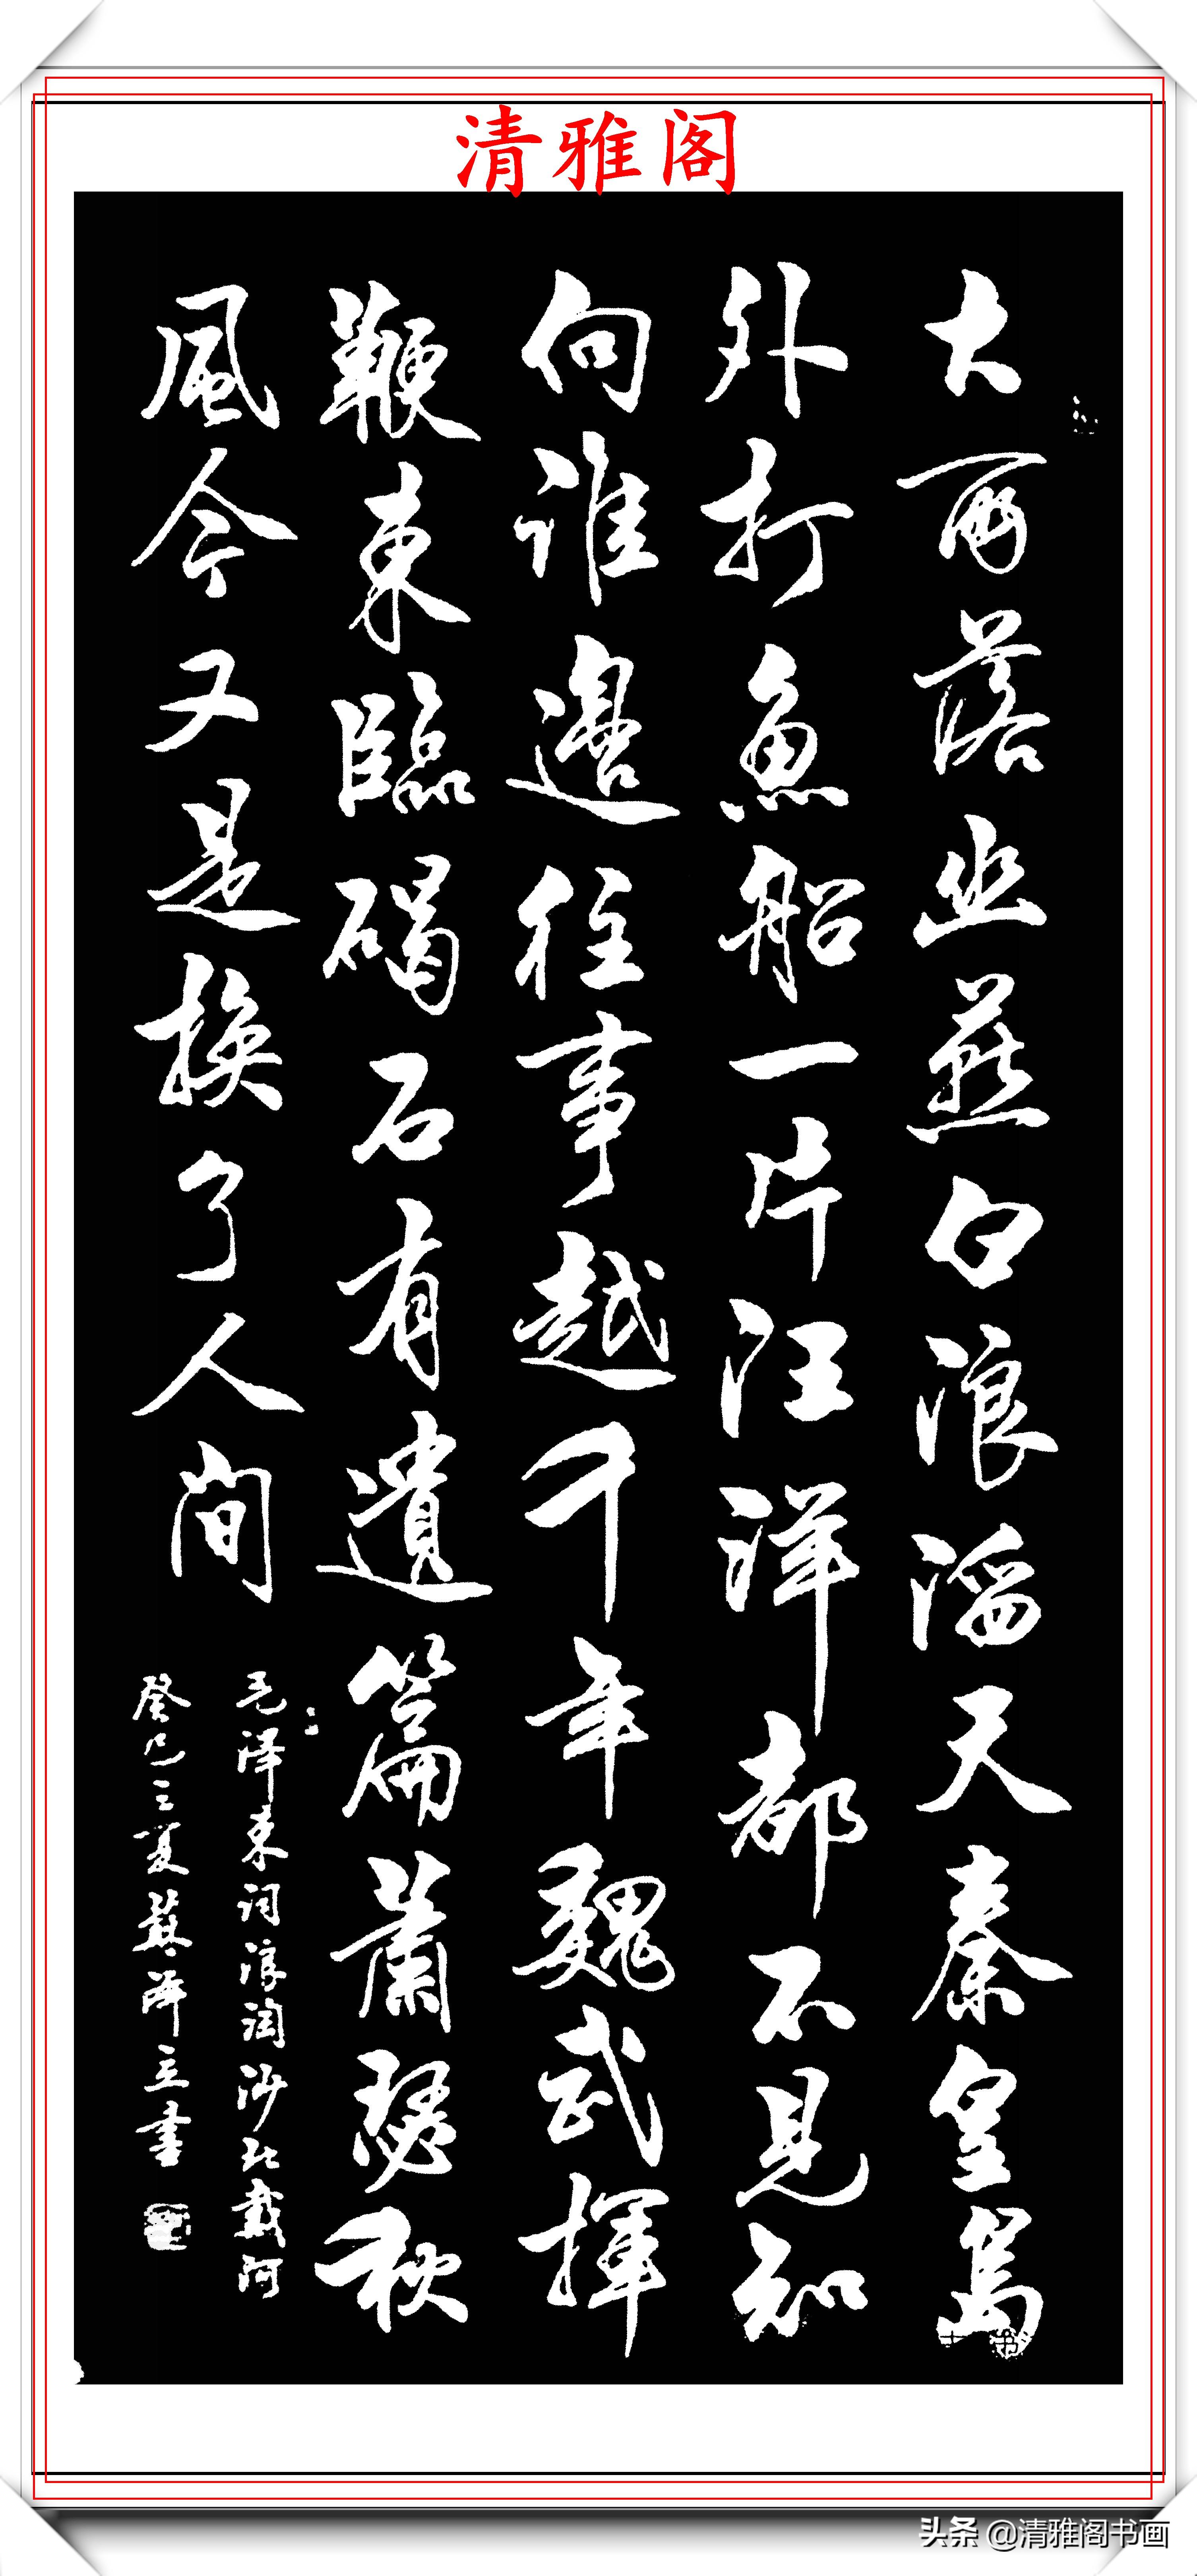 清雅阁
大雨落幽燕白浪滔天秦皇島
外打魚船一片汪洋都不見知
向谁邊往事越千年魏武揮
鞭東臨碣石有遺篇蕭瑟秋
風今又是換了人间
毛泽东词浪淘沙北戴河
癸巳之夏蘇泽立書
头条 @清雅阁书画